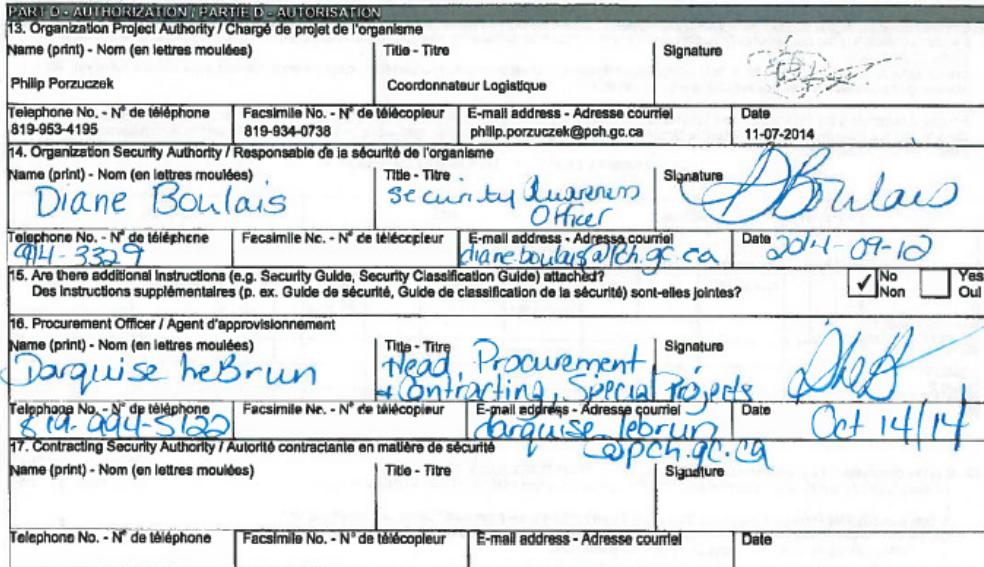 PART D - AUTHORIZATION / PARTIE D - AUTORISATION
13. Organization Project Authority / Chargé de projet de l'organisme
Name (print) - Nom (en lettres moulées) Title - Titre Signature
Philip Porzuczek Coordonnateur Logistique
Telephone No. - N° de téléphone Facsimile No. - N° de télécopieur E-mail address - Adresse courriel Date
819-953-4195 819-934-0738 philip.porzuczek@pch.gc.ca 11-07-2014
14. Organization Security Authority / Responsable de la sécurité de l'organisme
Name (print) - Nom (en lettres moulées) Title - Titre Signature
Diane Boulais Security Awareness Officer DBoulais
Telephone No. - N° de téléphone Facsimile No. - N° de télécopieur E-mail address - Adresse courriel Date
994-3329 diane.boulais@pch.gc.ca 2014-09-10
15. Are there additional instructions (e.g. Security Guide, Security Classification Guide) attached? No Yes
Des instructions supplémentaires (p. ex. Guide de sécurité, Guide de classification de la sécurité) sont-elles jointes? Non Oui
16. Procurement Officer / Agent d'approvisionnement
Name (print) - Nom (en lettres moulées) Title - Titre Signature
Darquise LeBrun Head, Procurement
+ Contracting, Special Projects
Telephone No. - N° de téléphone Facsimile No. - N° de télécopieur E-mail address - Adresse courriel Date
819-994-5122 darquise.lebrun Oct 14/14
@pch.gc.ca
17. Contracting Security Authority / Autorité contractante en matière de sécurité
Name (print) - Nom (en lettres moulées) Title - Titre Signature
Telephone No. - N° de téléphone Facsimile No. - N° de télécopieur E-mail address - Adresse courriel Date